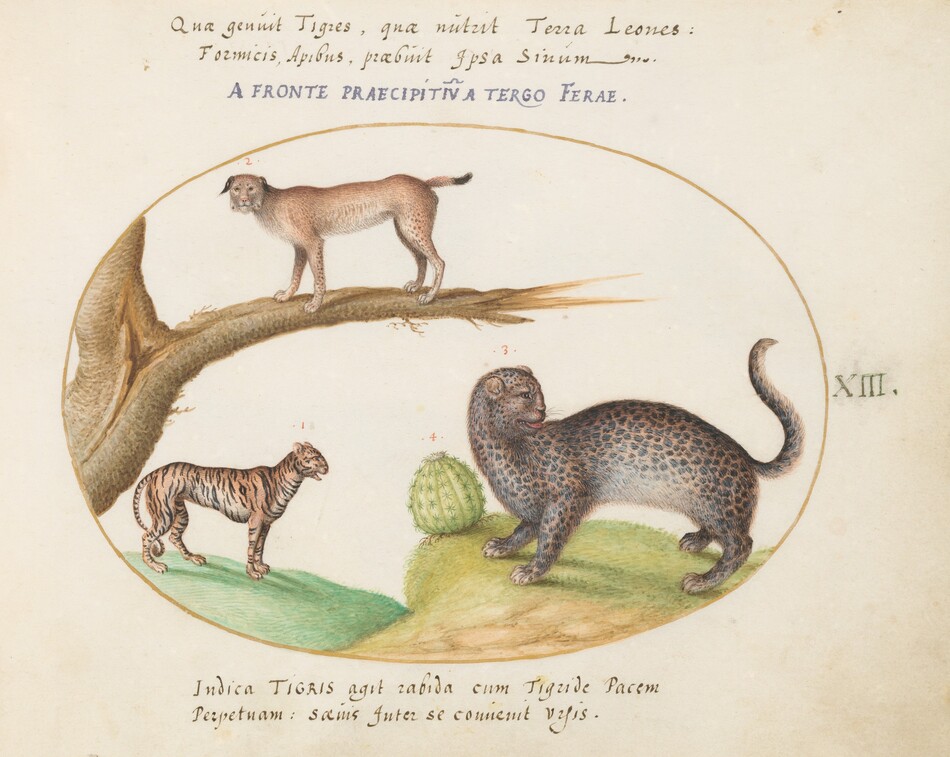 Quæ genuit Tigres, quæ nutrit Terra Leones:
Formicis, Apibus, præbuit Ipsa Sinum
A FRONTE PRAECIPITIV̄ A TERGO FERAE.
2
3
XIII.
4
1
Indica TIGRIS agit rabida cum Tigride Pacem
Perpetuam: sæuis Inter se conuenit Vrsis.